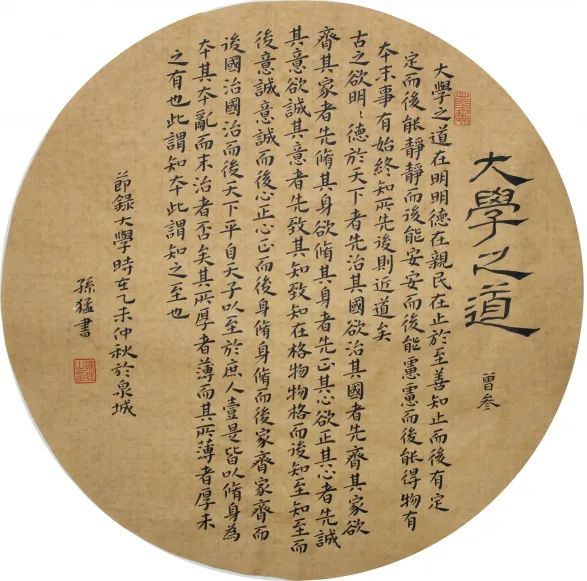 大學之道
曾參
大學之道在明明德在親民在止於至善知止而後有定
定而後能靜靜而後能安安而後能慮慮而後能得物有
本末事有始終知所先後則近道矣
古之欲明〻德於天下者先治其國欲治其國者先齊其家欲
齊其家者先脩其身欲脩其身者先正其心欲正其心者先誠
其意欲誠其意者先致其知致知在格物物格而後知至知至而
後意誠意誠而後心正心正而後身脩身脩而後家齊家齊而
後國治國治而後天下平自天子以至於庶人壹是皆以脩身為
本其本亂而末治者否矣其所厚者薄而其所薄者厚未
之有也此謂知本此謂知之至也
節錄大學時在乙未仲秋於泉城
孫猛書